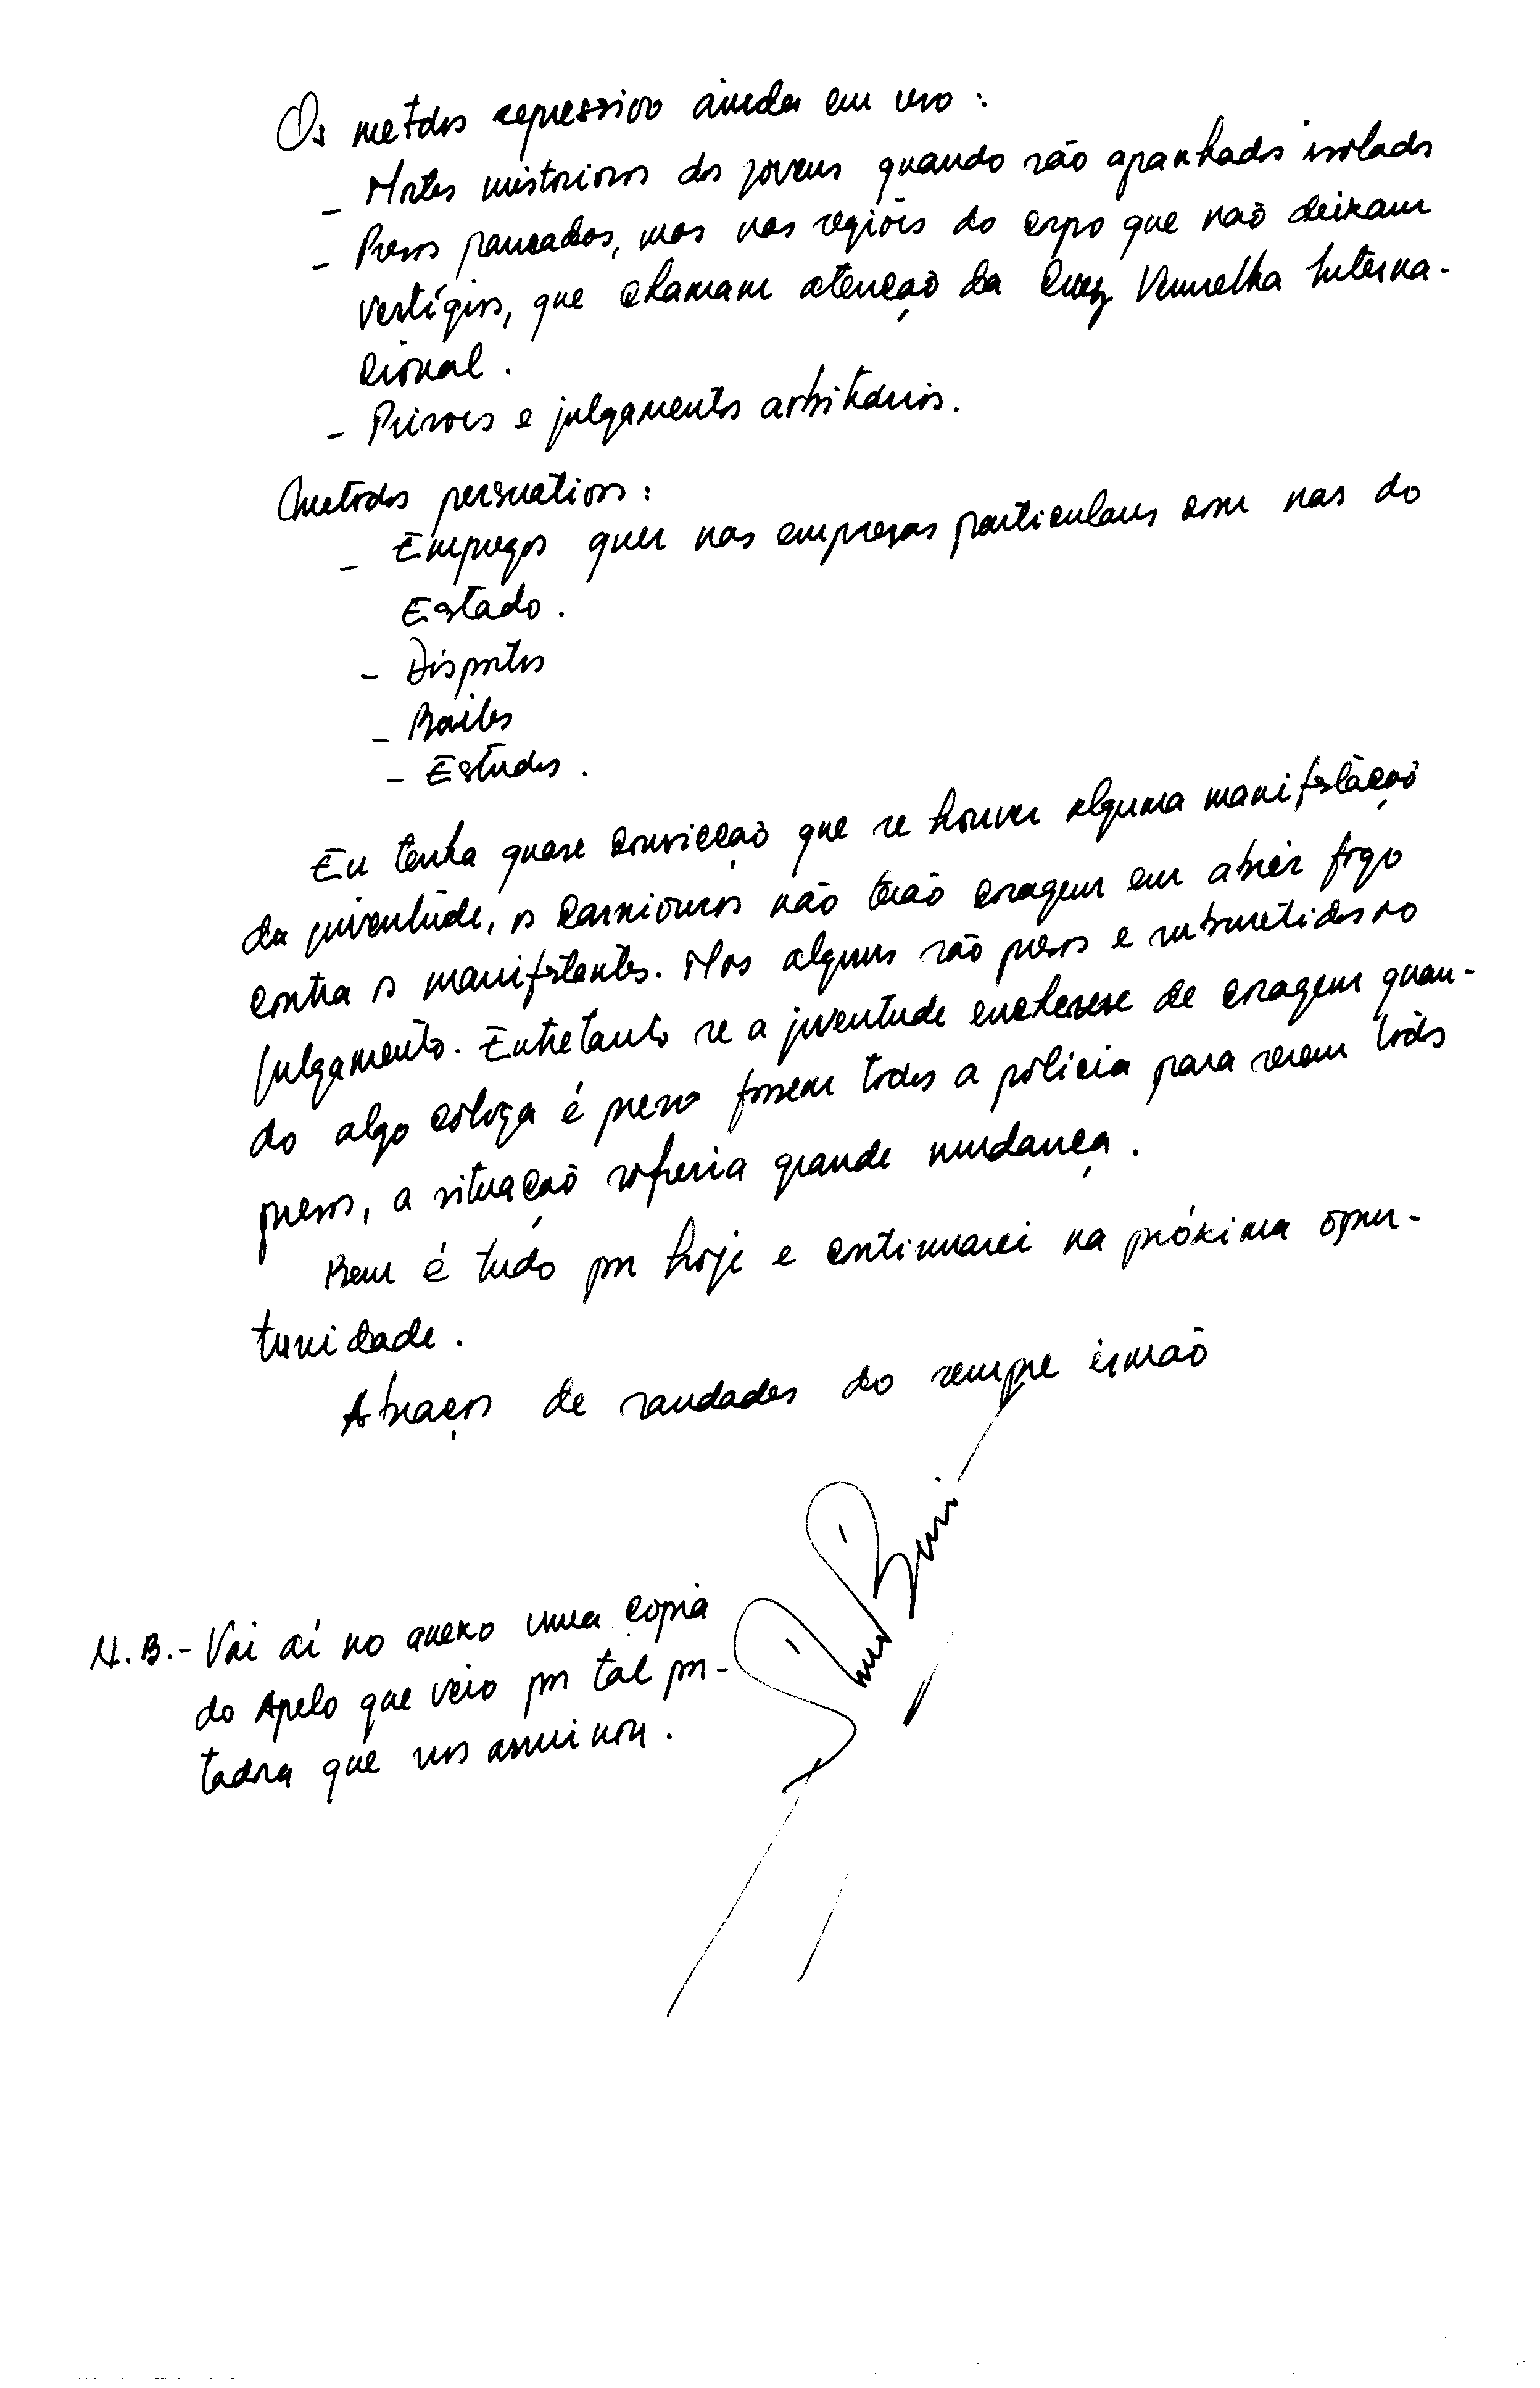 Os metdos repressivo ainda em uso :
- Mortes mistoriosos dos jovens quando são apanhados isolados
- Presos pancados, mas nas regiões do corpo que não deixam
vertígios, que chamam atenção da Cruz Vermelha Interna-
cional .
- Prisões e julgamentos arbitários.
Metodos persuativos :
- Empregos quer nas empresas particulares com nas do
Estado .
- Disportos
- Bailes
- Estudos .
Eu tenha quase convicção que se houver alguma manifestação
da juventude, os não terão coragem em abrir fogo
contra os manifestantes. Mas alguns são presos e submetidos ao
julgamento. Entretanto se a juventude enchesese de coragem quan-
do algo colega é preso fossem todos a policia para serem todos
presos, a situação sofreria grande mudança .
Bem é tudo por hoje e continuarei na próxima opor-
tunidade .
Abraços de saudades do sempre irmão
N.B.- Vai aí no anexo uma copia
do Apelo que veio por tal por-
tadora que nos